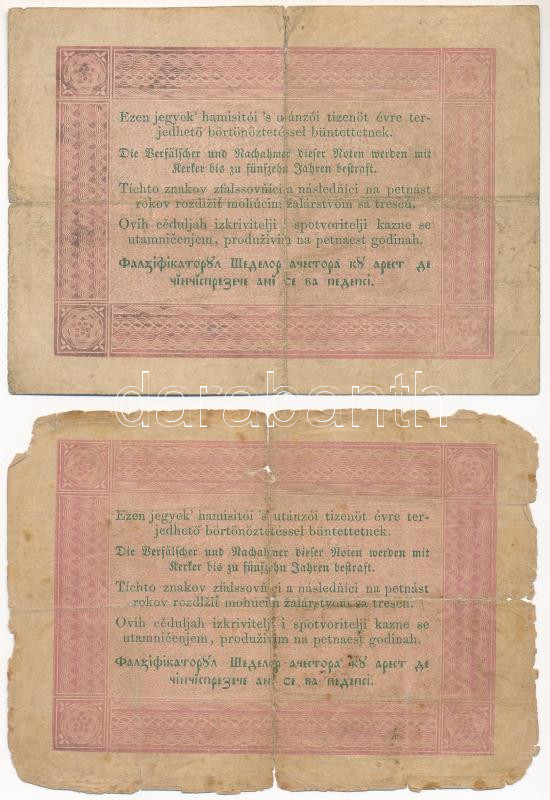 Ezen jegyek' hamisitói 's utánzói tizenöt évre ter-
jedhető börtönöztetéssel büntettetnek.
Die Verfälscher und Nachahmer dieser Noten werden mit
Kerker bis zu fünfzehn Jahren bestraft.
Tíchto znakov zfalssovňíci a následňíci na petnást
rokov rozdlžiť mohúcim žalárstvom sa trescú.
Ovih cěduljah izkrivitelji i spotvoritelji kazne se
utamničenjem, produživim na petnaest godinah.
Фалзіфікаторꙋл Шеделор ачестора кꙋ арест де
чінчіспрезече ані се ва педепсі.
darabanth
Ezen jegyek' hamisitói 's utánzói tizenöt évre ter-
jedhető börtönöztetéssel büntettetnek.
Die Verfälscher und Nachahmer dieser Noten werden mit
Kerker bis zu fünfzehn Jahren bestraft.
Tíchto znakov zfalssovňíci a následňíci na petnást
rokov rozdlžiť mohúcim žalárstvom sa trescú.
Ovih cěduljah izkrivitelji i spotvoritelji kazne se
utamničenjem, produživim na petnaest godinah.
Фалзіфікаторꙋл Шеделор ачестора кꙋ арест де
чінчіспрезече ані се ва педепсі.